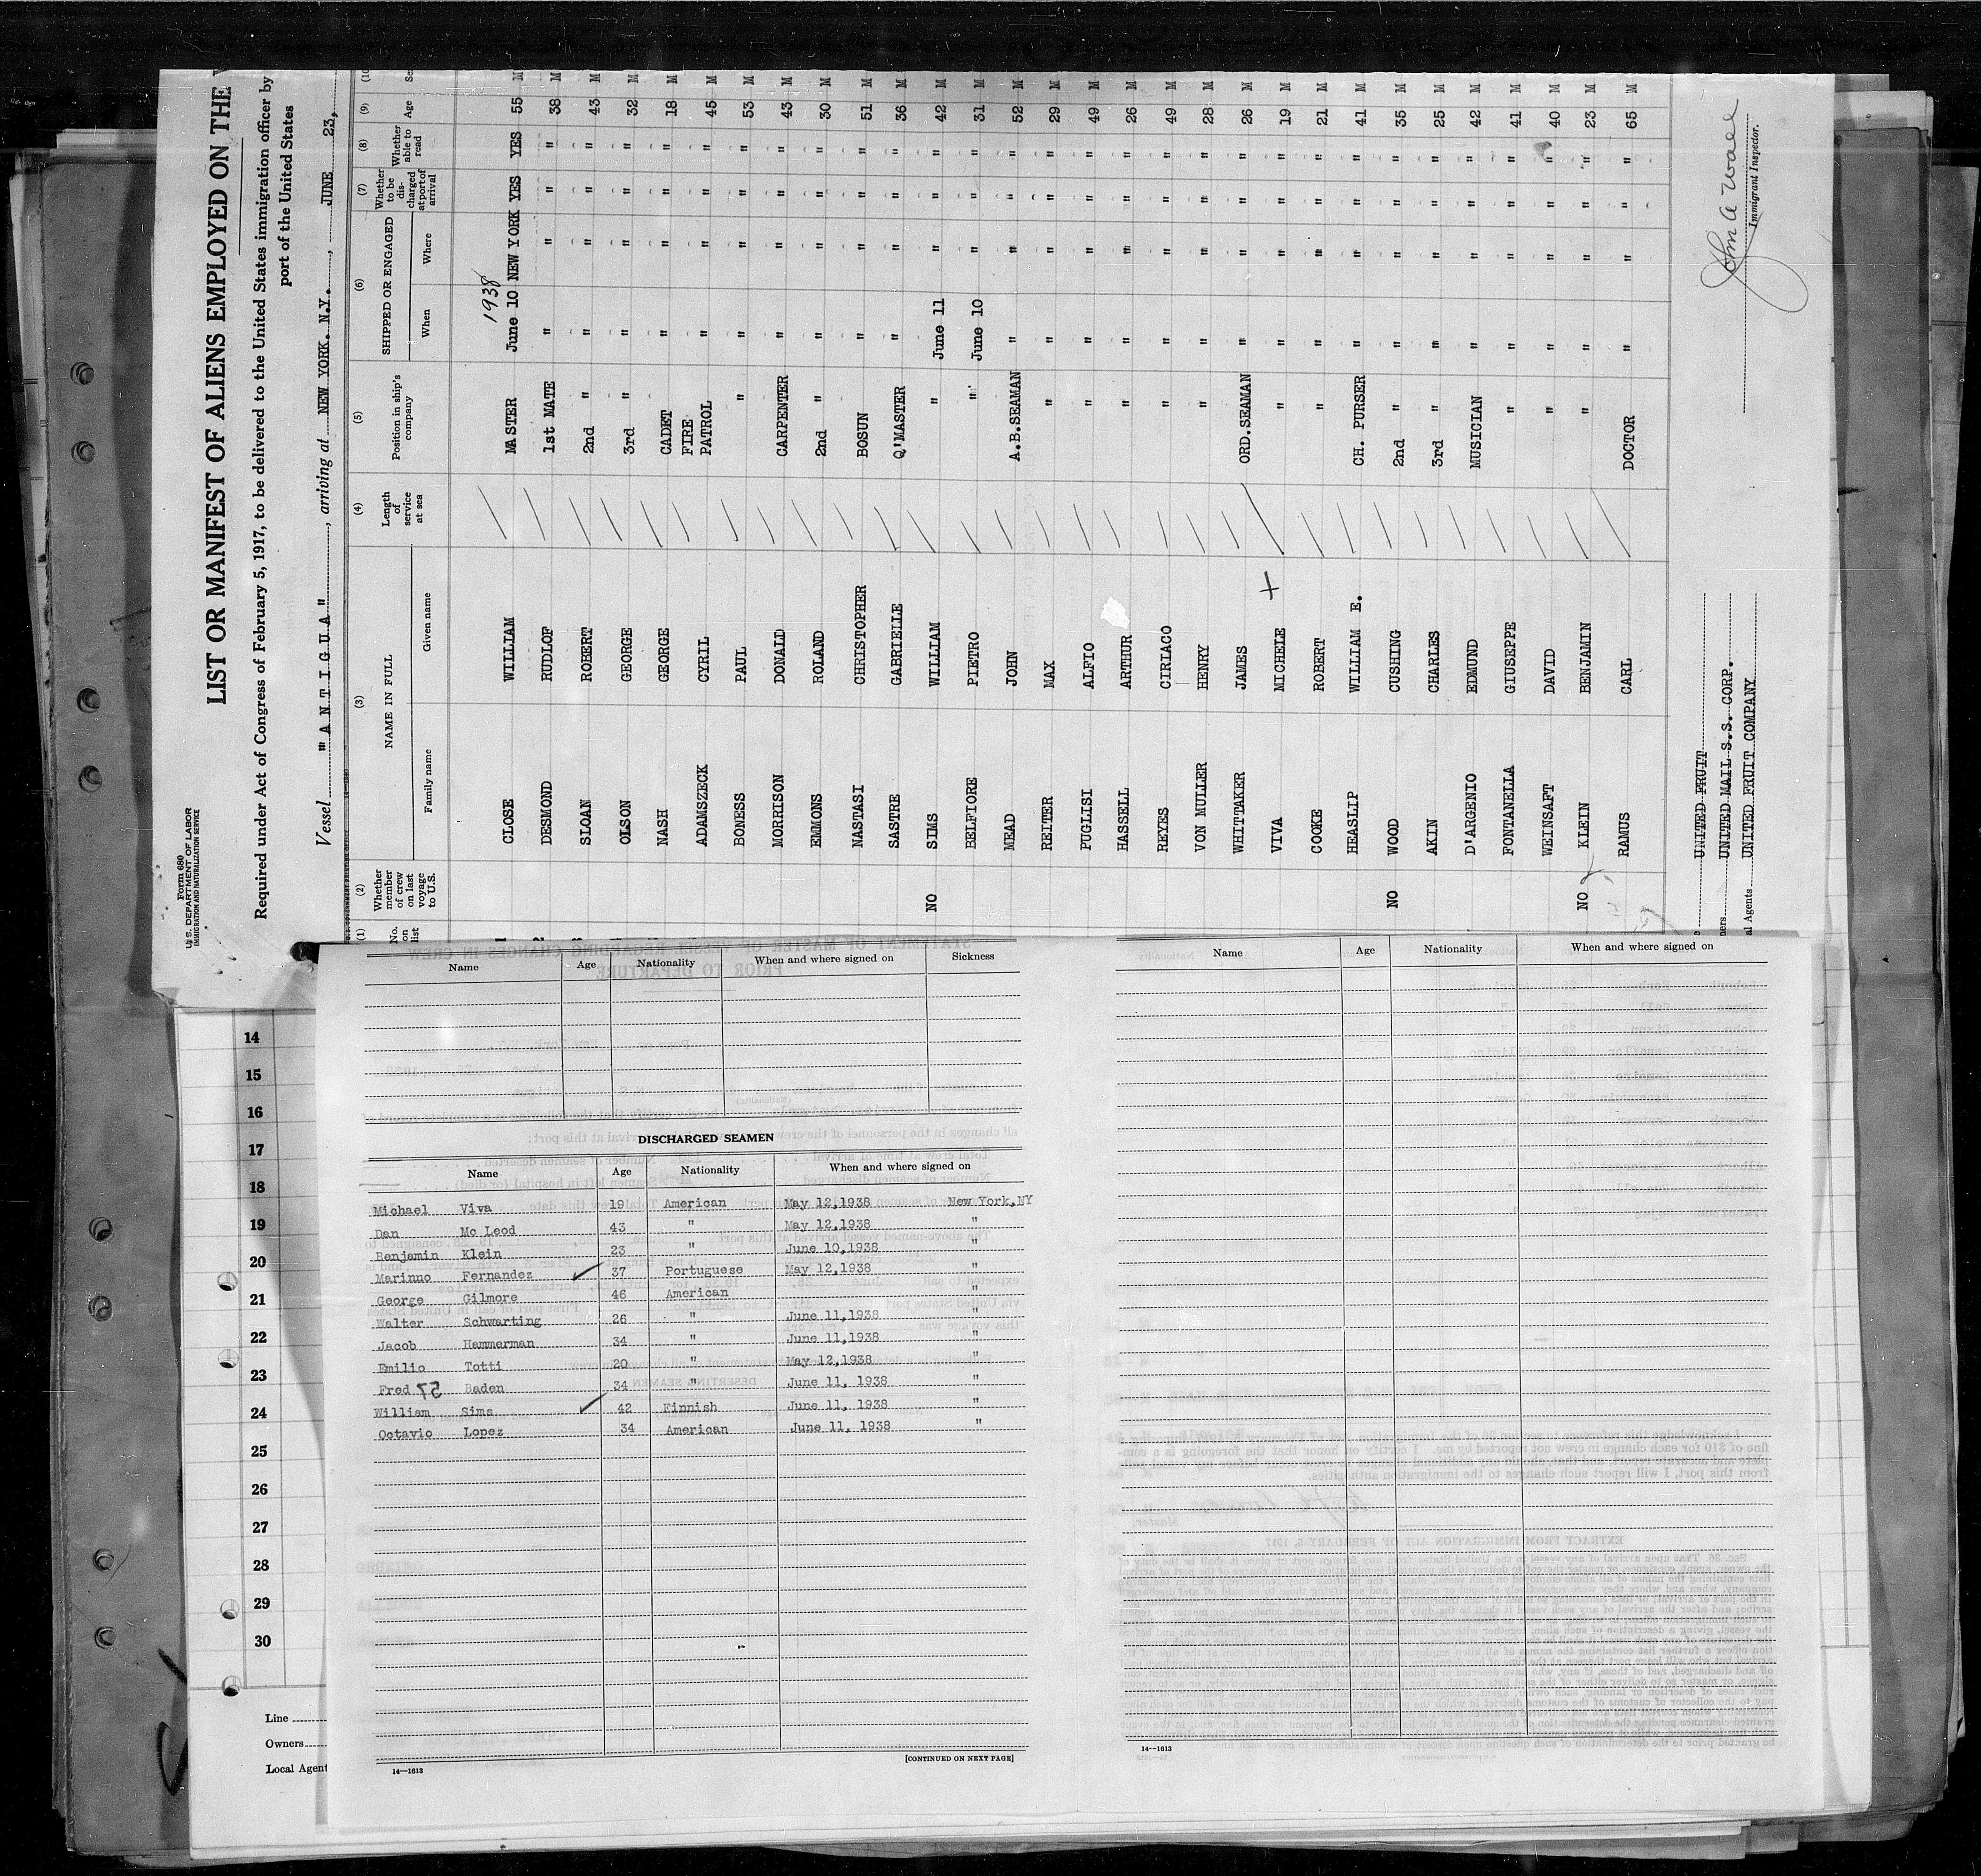 Form 680
U.S. DEPARTMENT OF LABOR
IMMIGRATION AND NATURALIZATION SERVICE
LIST OR MANIFEST OF ALIENS EMPLOYED ON THE
Required under Act of Congress of February 5, 1917, to be delivered to the United States immigration officer by
port of the United States
Vessel "ANTIGUA", arriving at NEW YORK. N.Y., JUNE 23,
(1) (2) (3) (4) (5) (6) (7) (8) (9) (10
No. on list Whether member of crew on last voyage to U.S. NAME IN FULL Length of service at sea Position in ship's company SHIPPED OR ENGAGED Whether to be discharged at port of arrival Whether able to read Age Se
Family name Given name When Where
1938
CLOSE WILLIAM MASTER June 10 NEW YORK YES YES 55 M
DESMOND RUDLOF 1st MATE " " " " 38 M
SLOAN ROBERT 2nd " " " " " 43 M
OLSON GEORGE 3rd " " " " " 32 M
NASH GEORGE CADET " " " " 18 M
ADAMSZECK CYRIL FIRE PATROL " " " " 45 M
BONESS PAUL " " " " " 53 M
MORRISON DONALD CARPENTER " " " " 43 M
EMMONS ROLAND 2nd " " " " " 30 M
NASTASI CHRISTOPHER BOSUN " " " " 51 M
SASTRE GABRIELLE Q'MASTER " " " " 36 M
NO SIMS WILLIAM " June 11 " " " 42 M
BELFIORE PIETRO " June 10 " " " 31 M
MEAD JOHN A.B.SEAMAN " " " " 52 M
REITER MAX " " " " " 29 M
PUGLISI ALFIO " " " " " 49 M
HASSELL ARTHUR " " " " " 26 M
REYES CIRIACO " " " " " 49 M
VON MULLER HENRY " " " " " 28 M
WHITTAKER JAMES ORD.SEAMAN " " " " 26 M
VIVA MICHELE + " " " " " 19 M
COOKE ROBERT " " " " " 21 M
HEASLIP WILLIAM E. CH. PURSER " " " " 41 M
NO WOOD CUSHING 2nd " " " " " 35 M
AKIN CHARLES 3rd " " " " " 25 M
D'ARGENIO EDMUND MUSICIAN " " " " 42 M
FONTANELLA GIUSEPPE " " " " " 41 M
WEINSAFT DAVID " " " " " 40 M
NO KLEIN BENJAMIN " " " " " 23 M
RAMUS CARL DOCTOR " " " " 65 M
UNITED FRUIT
ners UNITED MAIL S.S. CORP.
al Agents UNITED FRUIT COMPANY
Immigrant Inspector.
Name Age Nationality When and where signed on Sickness
DISCHARGED SEAMEN
Name Age Nationality When and where signed on
Michael Viva 19 American May 12,1938 New York,NY
Dan Mc Leod 43 " May 12,1938 "
Benjamin Klein 23 " June 10,1938 "
Marinuo Fernandez 37 Portuguese May 12,1938 "
George Gilmore 46 American "
Walter Schwarting 26 " June 11,1938 "
Jacob Hammerman 34 " June 11,1938 "
Emilio Totti 20 " May 12,1938 "
Fred Baden 34 " June 11, 1938 "
William Sims 42 Finnish June 11, 1938 "
Octavio Lopez 34 American June 11, 1938 "
[CONTINUED ON NEXT PAGE]
14—1613
Name Age Nationality When and where signed on
14—1613
14
15
16
17
18
19
20
21
22
23
24
25
26
27
28
29
30
Line
Owners
Local Agent